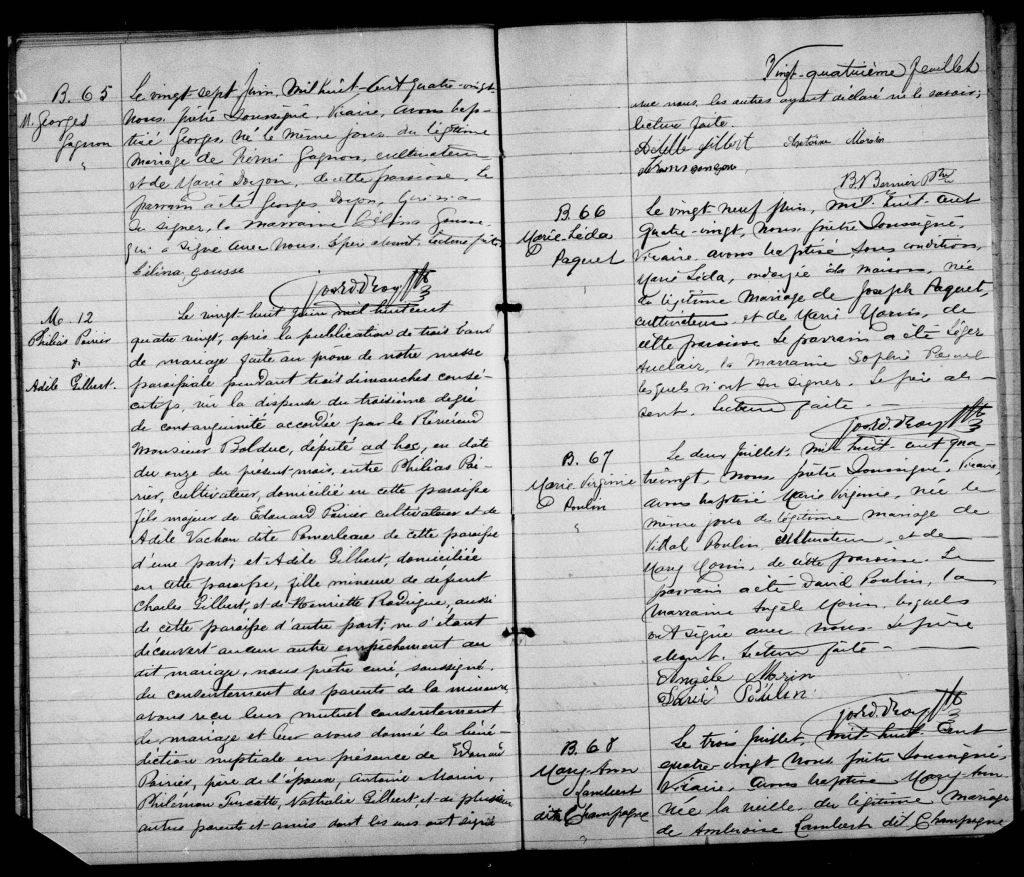 B. 65
M. Georges
Gagnon
Le vingt sept Juin, mil huit-cent quatre-vingt
Nous prêtre soussigné, Vicaire, avons bap-
tisé Georges, né le même jour du légitime
mariage de Rémi Gagnon, cultivateur
et de Marie Doyon, de cette paroisse, le
parrain a été Georges Doyon, qui n'a
su signer, la marraine Célina Gousse
qui a signé avec nous. Le père absent. Lecture faite
Célina gousse
M. 12
Philias Poirier
&
Adèle Gilbert.
Le vingt-huit juin mil huit cent
quatre vingt, après la publication de trois bans
de mariage faite au prone de notre messe
paroissiale pendant trois dimanches consé-
cutifs, vu la dispense du troisième dégré
de consanguinité accordée par le Révérend
Monsieur Bolduc, député ad hoc, en date
du onze du présent mois, entre Philias Poi-
rier, cultivateur, domicilié en cette paroisse
fils majeur de Edouard Poirier cultivateur et de
Adèle Vachon dite Pomerleau de cette paroisse
d'une part; et Adèle Gilbert, domiciliée
en cette paroisse, fille mineure de défunt
Charles Gilbert, et de Henriette Rodrigue, aussi
de cette paroisse d'autre part; ne s'étant
découvert aucun autre empêchement au
dit mariage, nous prêtre curé, soussigné,
du consentement des parents de la mineure,
avons reçu leur mutuel consentement
de mariage et leur avons donné la béné-
diction nuptiale en présence de Edouard
Poirier, père de l'époux, Antoine Morin,
Philemon Turcotte, Nathalie Gilbert, et de plusieurs
autres parents et amis dont les uns ont signé
Vingt-quatrième feuillet
avec nous, les autres ayant déclaré ne le savoir;
lecture faite.
Adelle gilbert Antoine Morin
B. Bernier Ptre
B. 66
Marie Léda
Paquet
Le vingt-neuf Juin, mil huit-cent
quatre-vingt, nous prêtre soussigné,
Vicaire avons baptisé sous conditions,
Marie Léda, ondoyée à la maison, née
du légitime mariage de Joseph Paquet,
cultivateur, et de Marie Morin, de
cette paroisse Le parrain a été Léger
Auclair, la marraine Sophie
lesquels n'ont su signer. Le père ab-
sent. Lecture faite.
B. 67
Marie Virginie
Poulin
Le deux Juillet, mil huit cent qua-
trevingt, nous prêtre soussigné, Vicaire,
avons baptisé Marie Virginie, née le
même jour du légitime mariage de
Vital Poulin, cultivateur, et de
Mary Morin, de cette paroisse. Le
parrain a été David Poulin, la
marraine Angèle Morin, lesquels
ont signé avec nous. Le père
absent. Lecture faite
Angèle Morin
David Poulin
B. 68
Mary-Ann
Lambert
dit Champagne
Le trois Juillet, mil huit Cent
quatre-vingt nous prêtre soussigné,
Vicaire, avons baptisé Mary-Ann
née la veille, du légitime mariage
de Ambroise Lambert dit Champagne